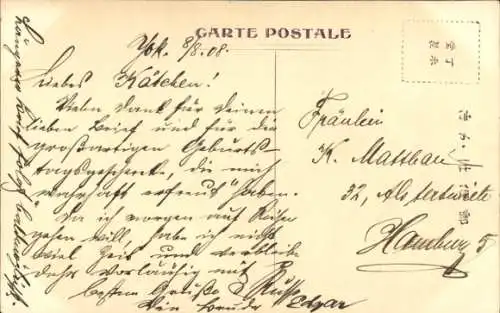 CARTE POSTALE
Yok. 8/8.08.
Liebes Kätchen!
Vielen Dank für deinen
lieben Brief und für die
großartigen Geburts-
tagsgeschenke, die mich
"wahrhaft erfreut" haben.
Da ich morgen auf Reisen
gehen will, habe ich nicht
viel Zeit und verbleibe
daher vorläufig mit
besten Grüße & Kuss
Dein Bruder Edgar
Längerer Brief folgt
Fräulein
K. Matthau
32, Alsterweite
Hamburg 5